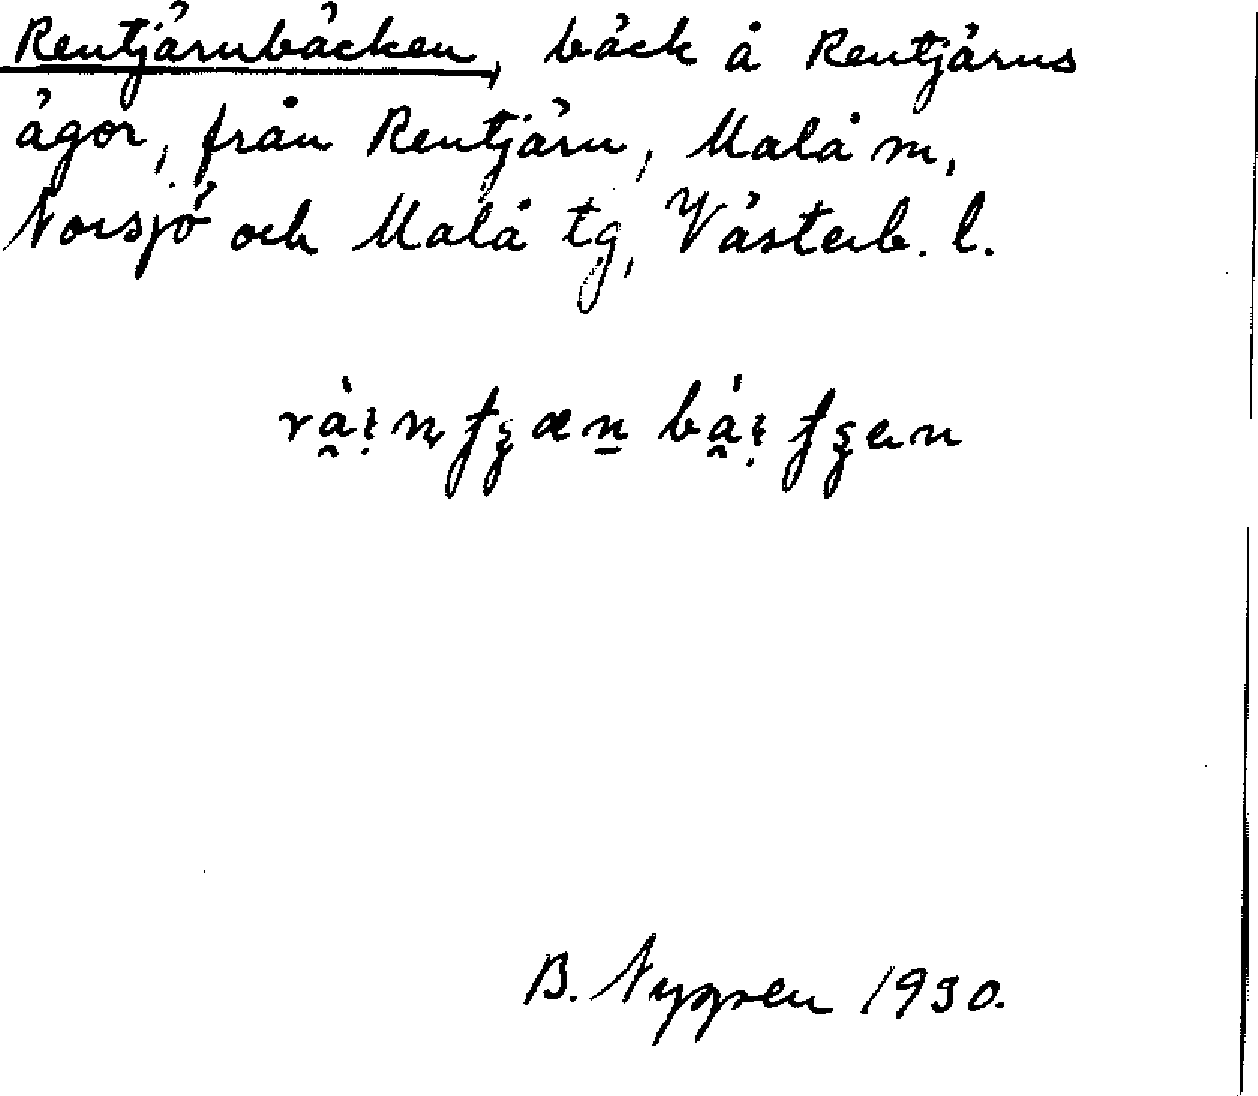 Rentjärnbäcken, bäck å Rentjärns
ägor, från Rentjärn, Malå m,
Norsjö och Malå tg, Västerb. l.
B. Nygren 1930.